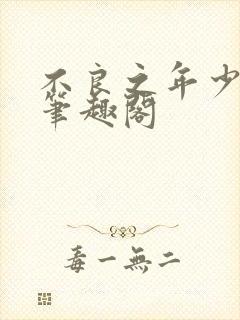 不良之年少
筆趣閣
毒一無二